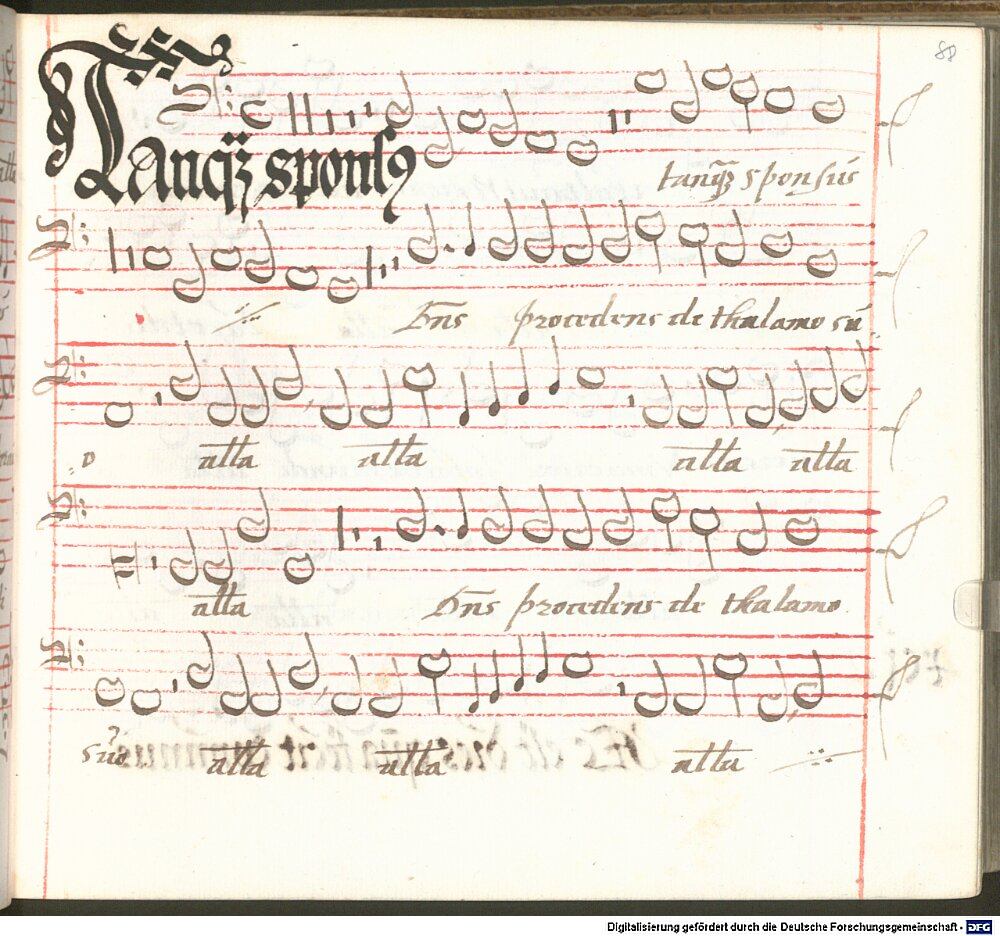 80
Tanqʒ sponsꝯ
tanqʒ sponsūs
Dn̄s procedens de thalamo sū
o alla alla alla alla
alla Dn̄s procedens de thalamo
suo alla alla alla
Digitalisierung gefördert durch die Deutsche Forschungsgemeinschaft - DFG